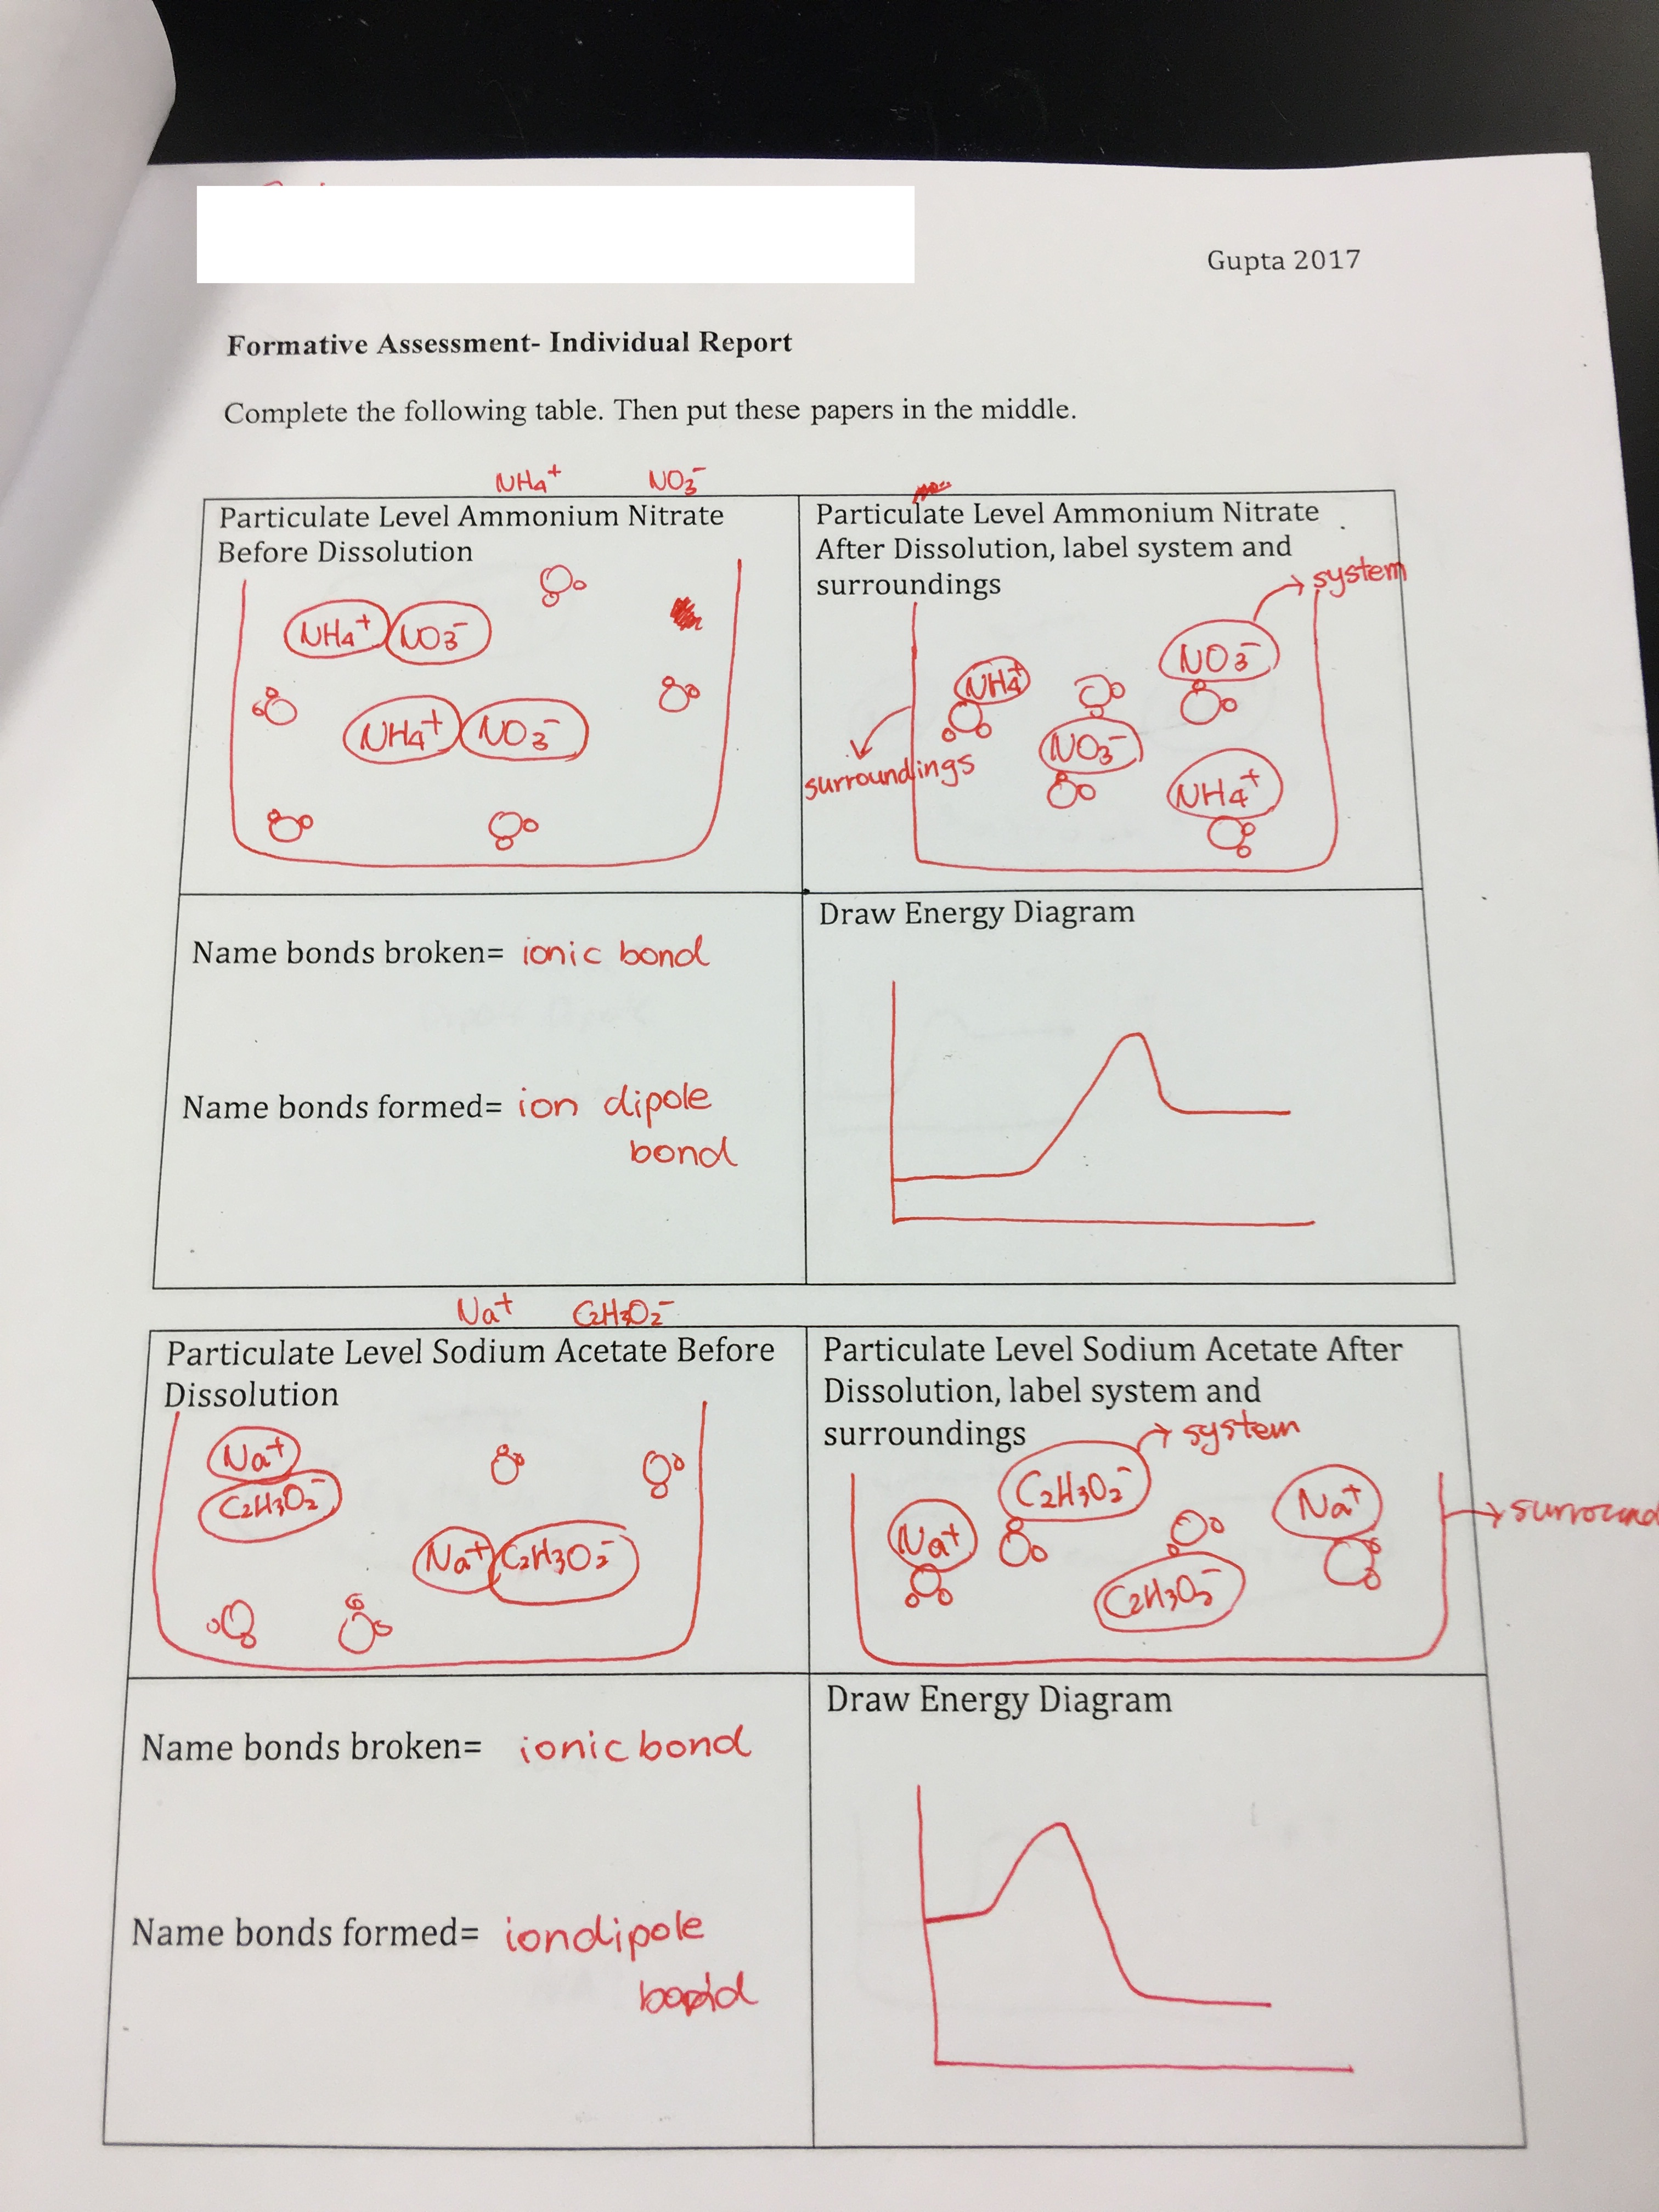 Gupta 2017
Formative Assessment- Individual Report
Complete the following table. Then put these papers in the middle.
NH4+ NO3-
Particulate Level Ammonium Nitrate
Before Dissolution
NH4+ NO3-
NH4+ NO3-
Particulate Level Ammonium Nitrate
After Dissolution, label system and
surroundings
system
NO3-
NH4+
NO3-
surroundings
NH4+
Name bonds broken= ionic bond
Name bonds formed= ion dipole
bond
Draw Energy Diagram
Na+ C2H3O2-
Particulate Level Sodium Acetate Before
Dissolution
Na+
C2H3O2-
Na+ C2H3O2-
Particulate Level Sodium Acetate After
Dissolution, label system and
surroundings
system
C2H3O2-
Na+
Na+
surround
C2H3O2-
Name bonds broken= ionic bond
Name bonds formed= iondipole
bond
Draw Energy Diagram